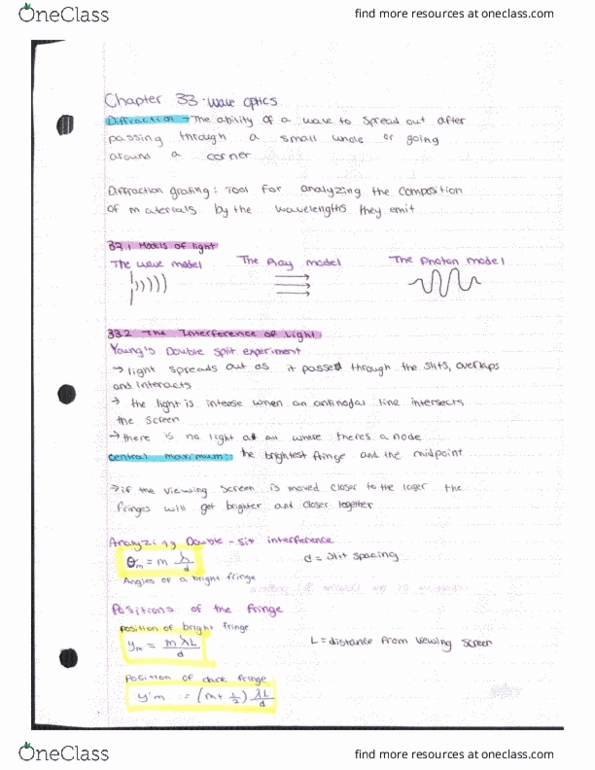 OneClass
find more resources at oneclass.com
Chapter 33 - Wave optics
Diffraction → The ability of a wave to spread out after
passing through a small whole or going
around a corner
Diffraction grating: Tool for analyzing the composition
of materials by the wavelengths they emit
33.1 Models of light
The wave model The Ray model The Photon model
33.2 The Interference of Light
Young's Double Slit experiment
→ light spreads out as it passed through the slits, overlaps
and interacts
→ the light is intense when an antinodal line intersects
the screen
→ there is no light at all where theres a node
central maximum: the brightest fringe and the midpoint
→ if the viewing screen is moved closer to the laser the
fringes will get brighter and closer together
Analyzing Double-slit interference
θm = m λ/d d = slit spacing
Angles of a bright fringe
Positions of the fringe
Position of bright fringe
ym = mλL/d L = distance from viewing screen
Position of dark fringe
y'm = (m + 1/2) λL/d
OneClass
find more resources at oneclass.com